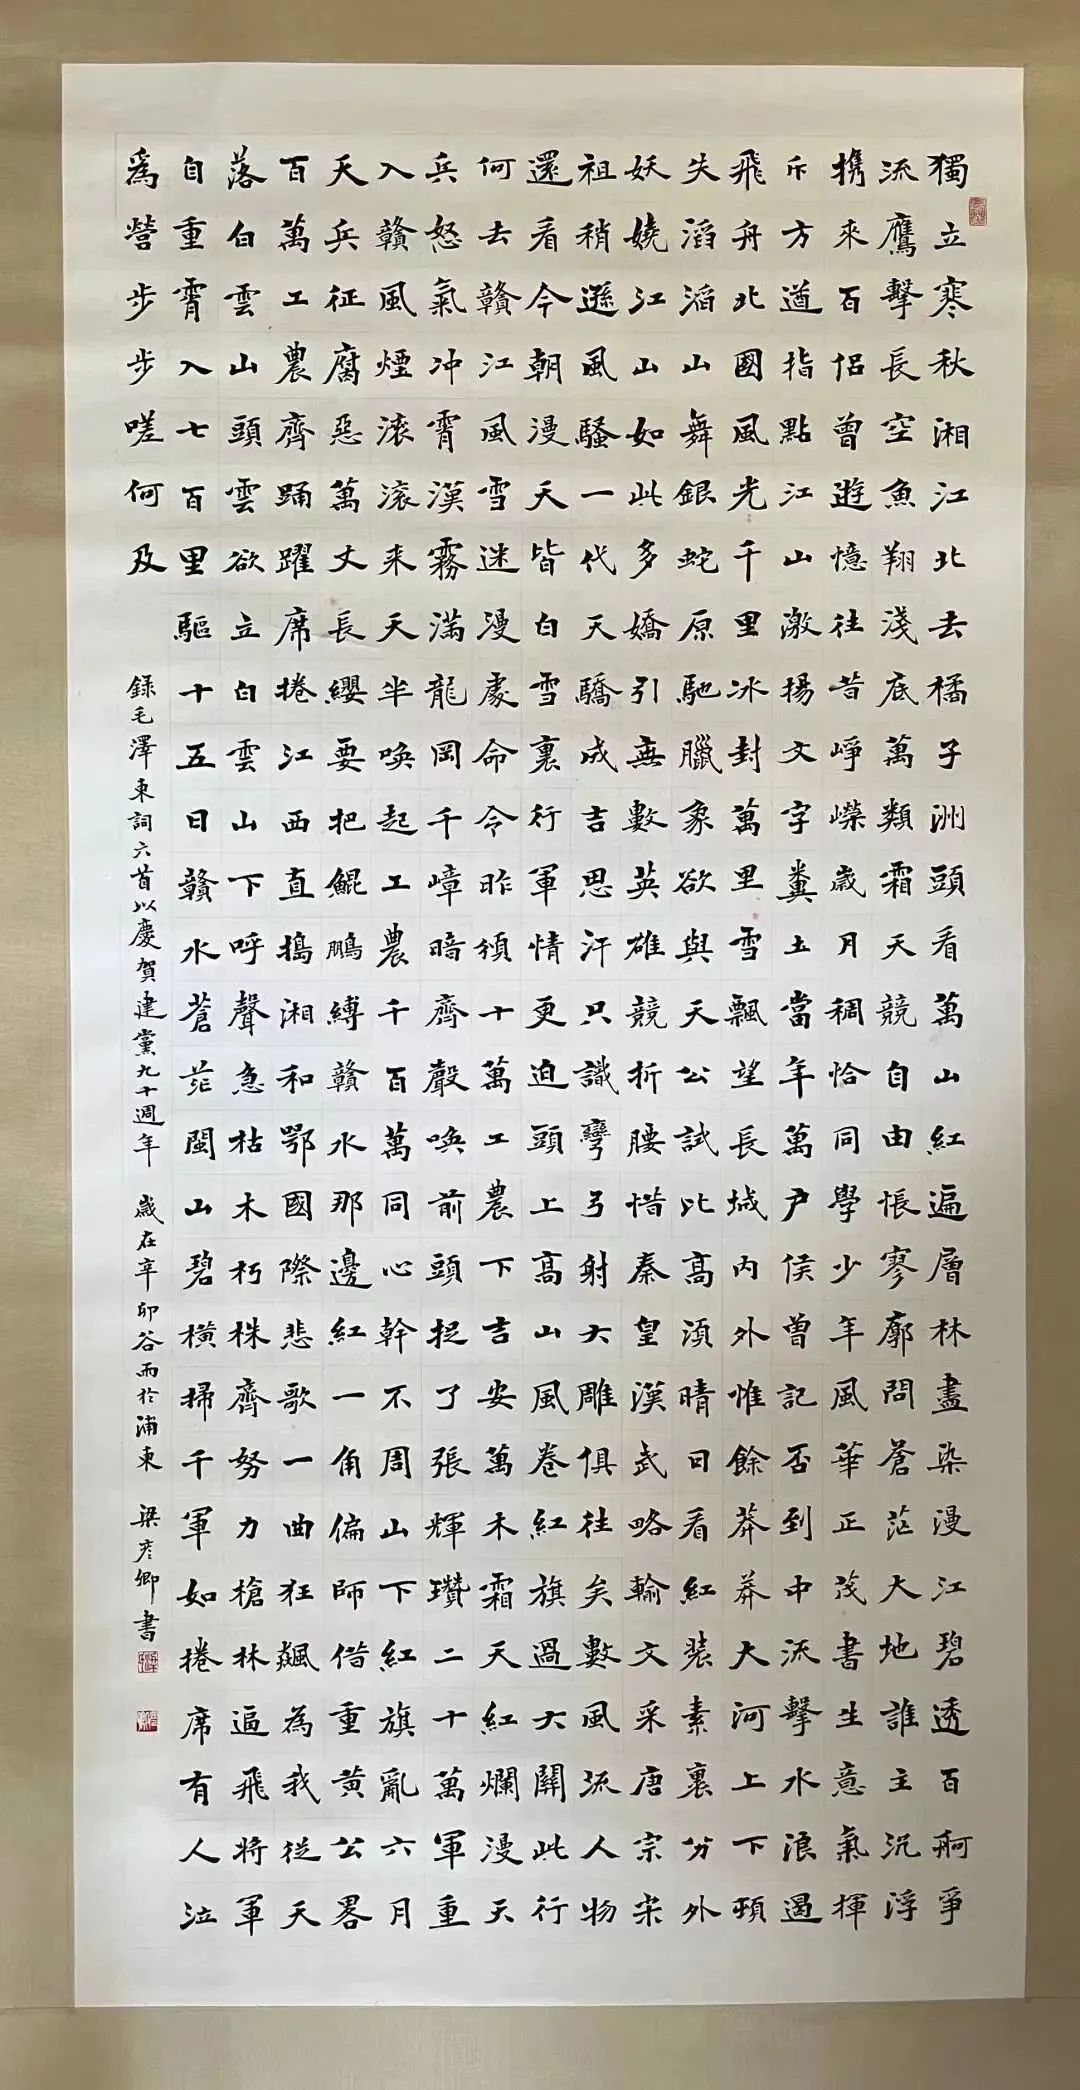 獨立寒秋湘江北去橘子洲頭看萬山紅遍層林盡染漫江碧透百舸爭
流鷹擊長空魚翔淺底萬類霜天競自由悵寥廓問蒼茫大地誰主沉浮
携來百侶曾遊憶往昔崢嶸歲月稠恰同學少年風華正茂書生意氣揮
斥方遒指點江山激揚文字糞土當年萬户侯曾記否到中流擊水浪遏
飛舟北國風光千里冰封萬里雪飄望長城内外惟餘莽莽大河上下頓
失滔滔山舞銀蛇原馳臘象欲與天公試比高須晴日看紅裝素裹分外
妖嬈江山如此多嬌引無數英雄競折腰惜秦皇漢武略輸文采唐宗宋
祖稍遜風騷一代天驕成吉思汗只識彎弓射大雕俱往矣數風流人物
還看今朝漫天皆白雪裏行軍情更迫頭上高山風卷紅旗過大關此行
何去贛江風雪迷漫處命令昨頒十萬工農下吉安萬木霜天紅爛漫天
兵怒氣冲霄漢霧滿龍岡千嶂暗齊聲喚前頭捉了張輝瓚二十萬軍重
入贛風煙滚滚来天半喚起工農千百萬同心幹不周山下紅旗亂六月
天兵征腐惡萬丈長纓要把鯤鵬縛贛水那邊紅一角偏師借重黄公畧
百萬工農齊踴躍席捲江西直搗湘和鄂國際悲歌一曲狂飆為我從天
落白雲山頭雲欲立白雲山下呼聲急枯木朽株齊努力槍林逼飛將軍
自重霄入七百里驅十五日贛水蒼茫閩山碧横掃千軍如捲席有人泣
爲營步步嗟何及
録毛澤東詞六首以慶賀建黨九十週年 歲在辛卯谷雨於浦東 梁彦卿書